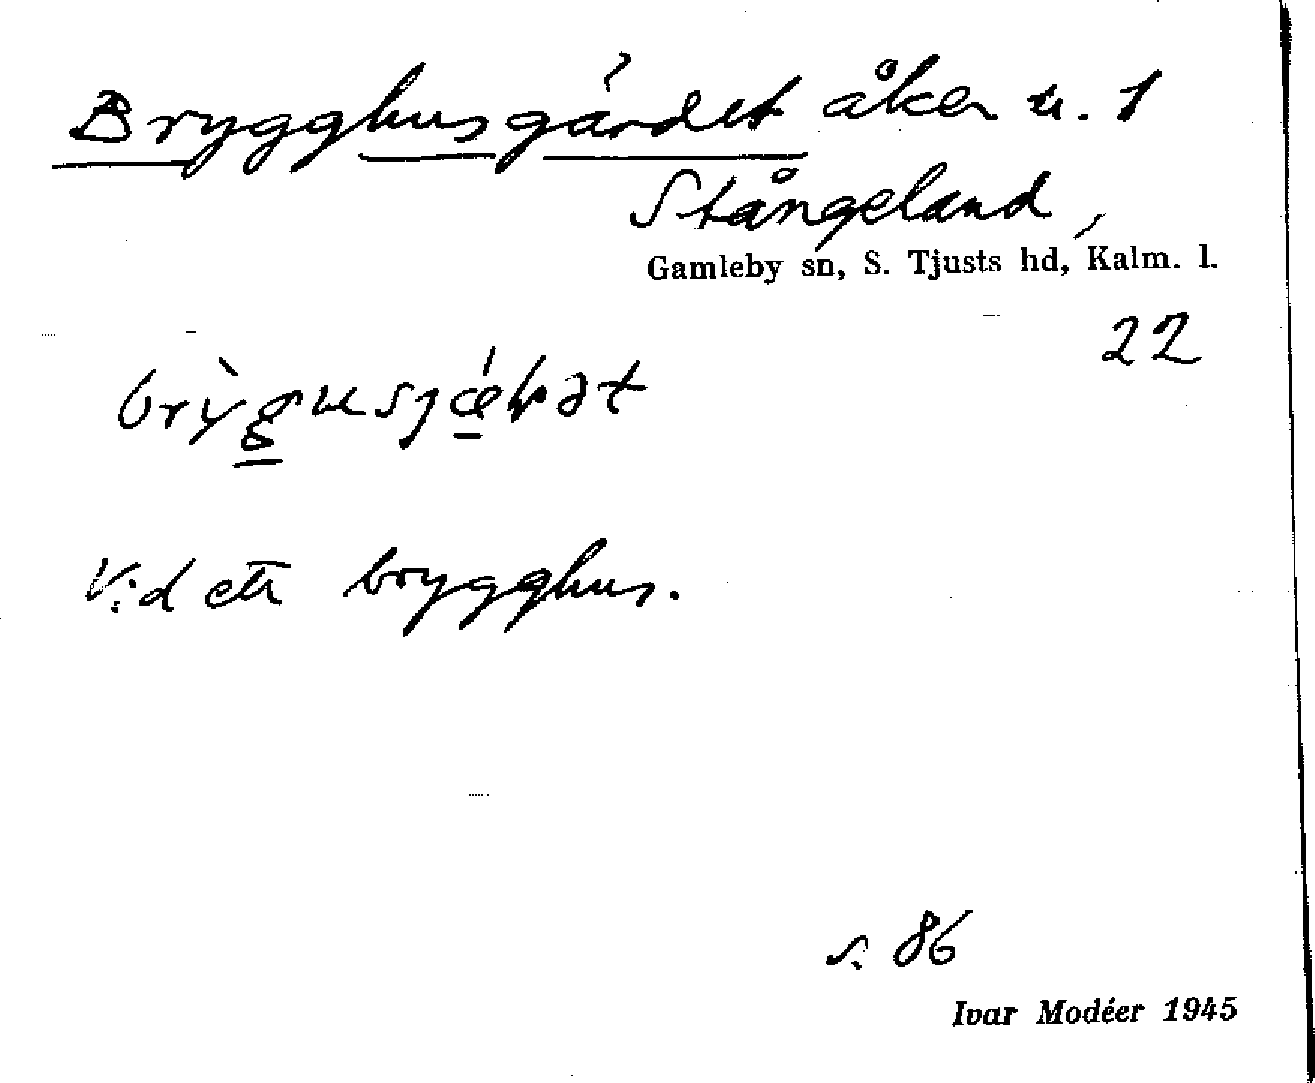 Brygghusgärdet åker u. 1
Stångeland,
Gamleby sn, S. Tjusts hd, Kalm. l.
22
Vid ett brygghus.
s. 86
Ivar Modéer 1945